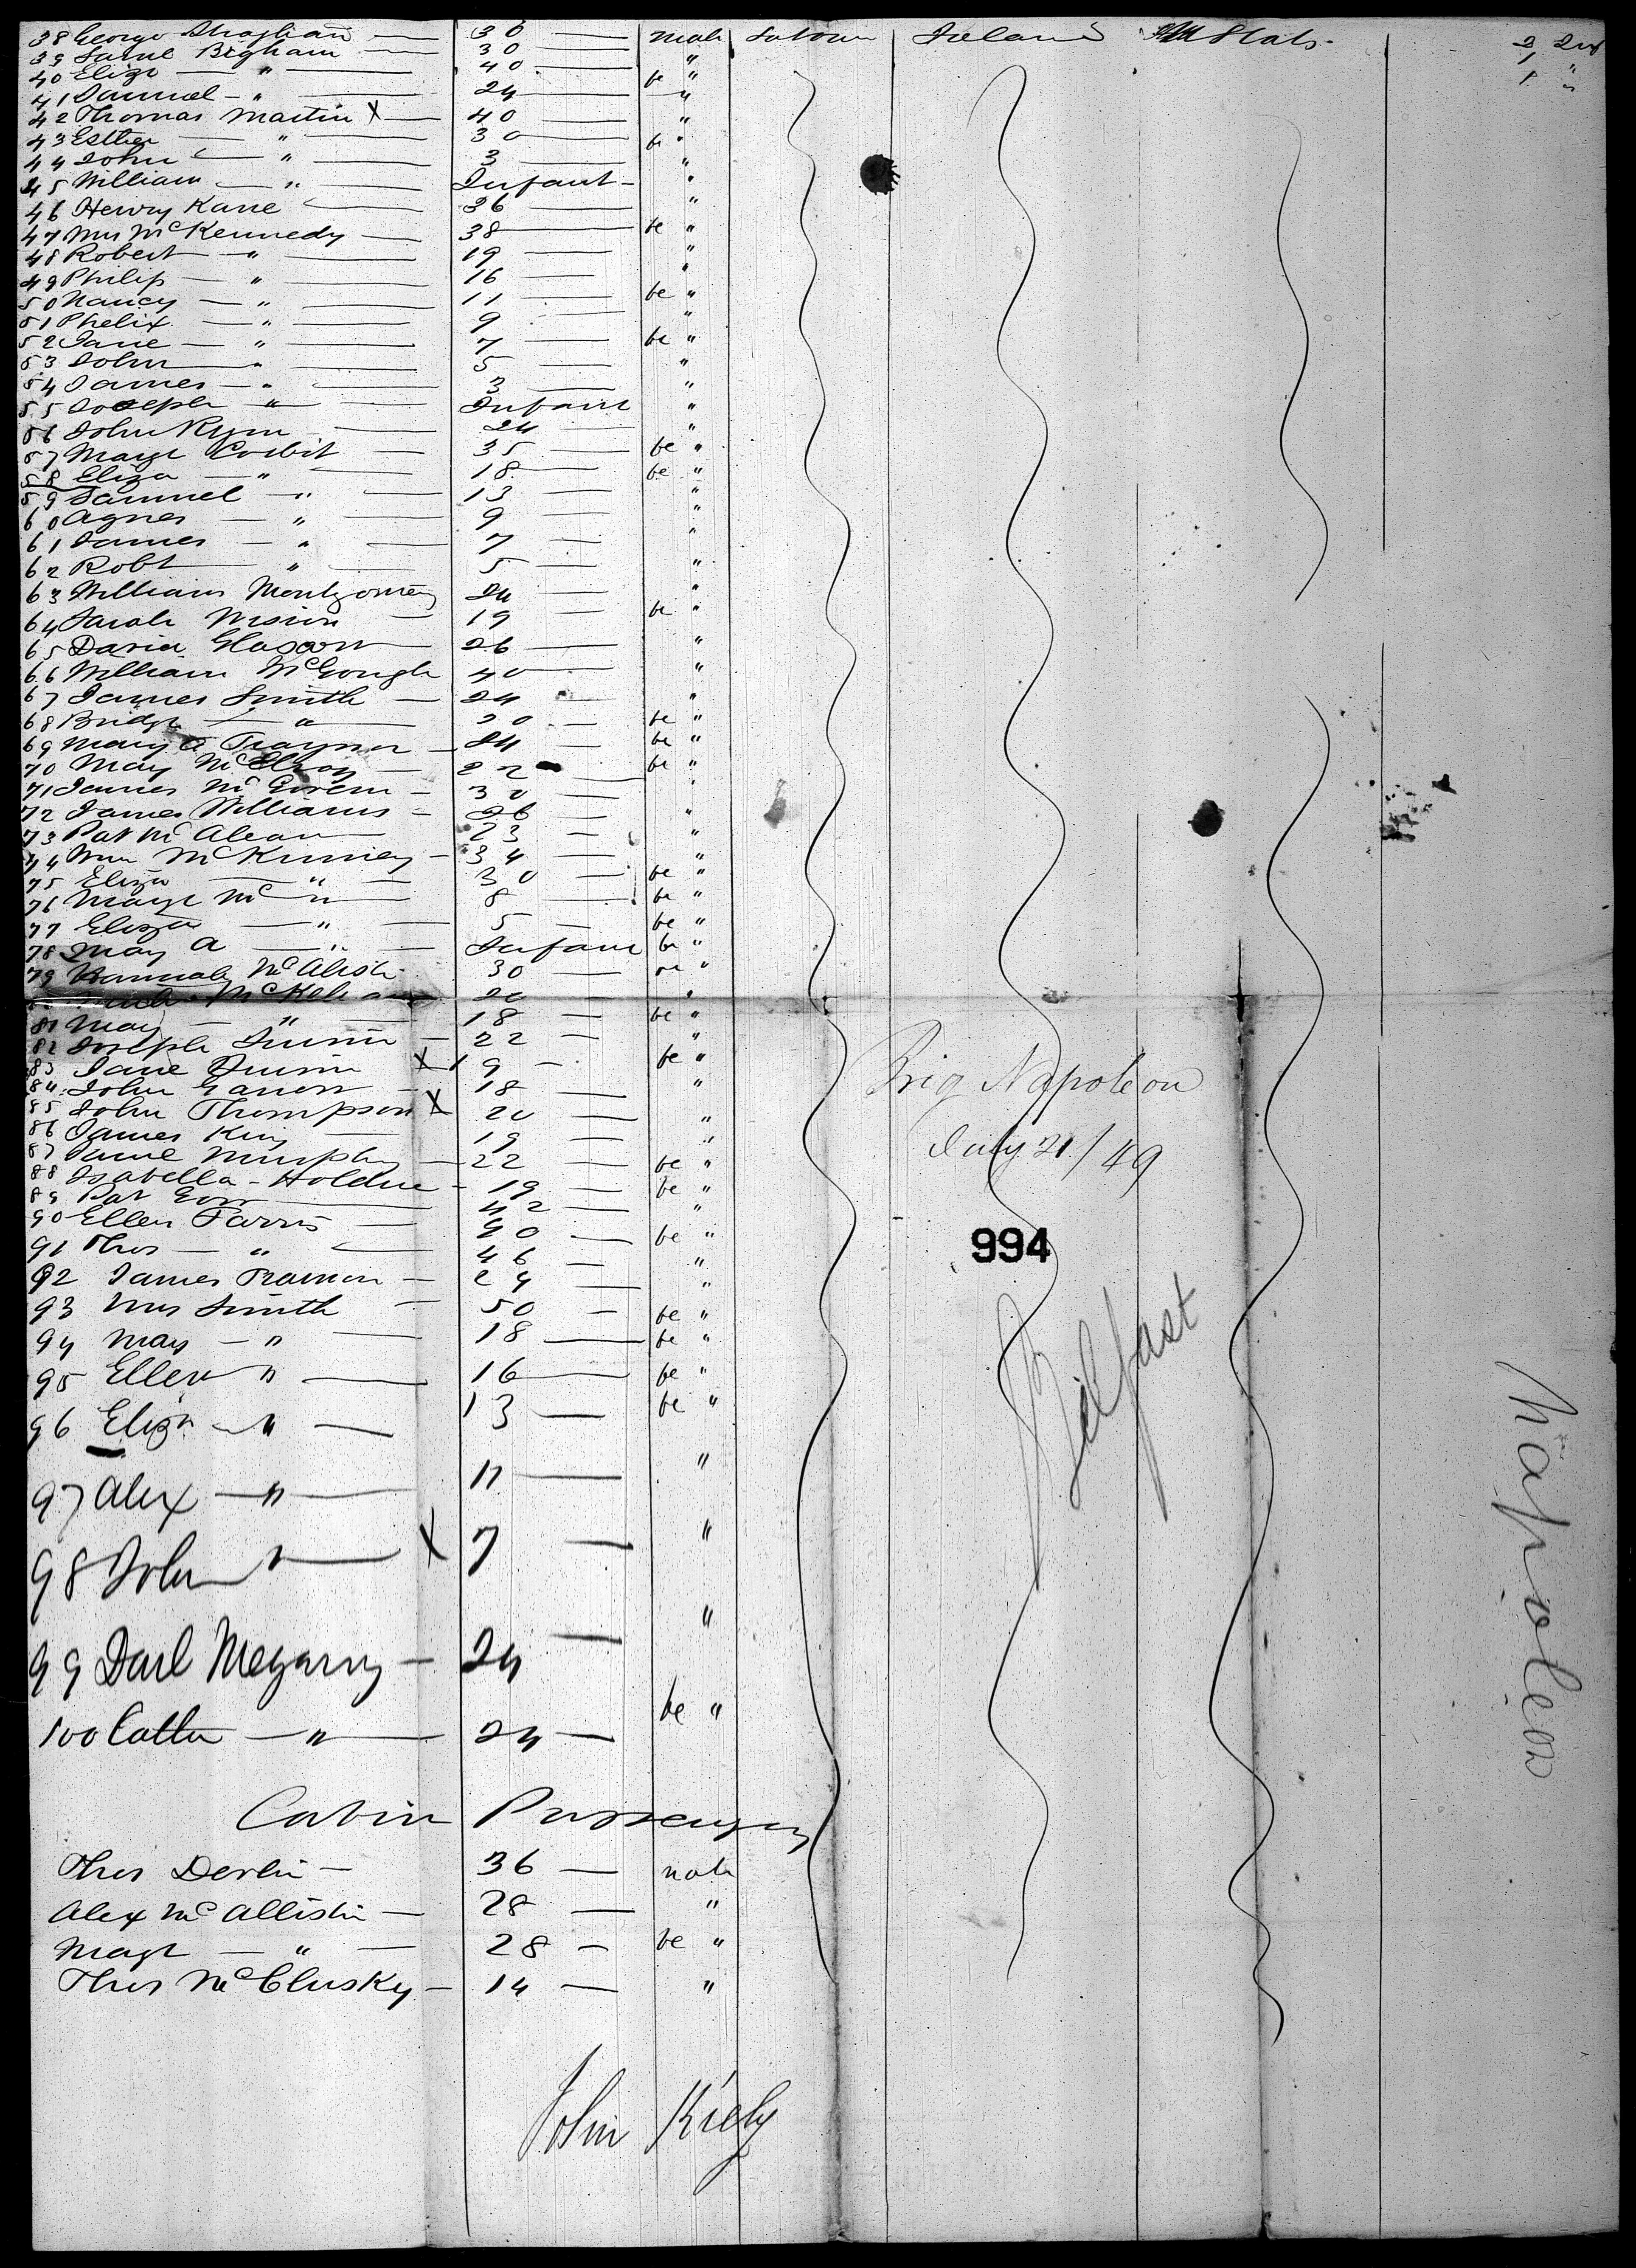 38 George Straghan 30 Male Labour Ireland U States
39 Saml Bigham 30 "
40 Eliza " 40 fe "
41 Samuel " 24 "
42 Thomas Martin X 40 "
43 Esther " 30 fe "
44 John " 3 "
45 William " Infant "
46 Henry Kane 36 "
47 Mrs McKennedy 38 fe "
48 Robert " 19 "
49 Philip " 16 "
50 Nancy " 11 fe "
51 Phelix " 9 "
52 Jane " 7 fe "
53 John " 5 "
54 James " 3 "
55 Joseph " Infant "
56 John Rynn 24 "
57 Margt Corbit 35 fe "
58 Eliza " 18 fe "
59 Samuel " 13 "
60 Agnes " 9 "
61 James " 7 "
62 Robt " 5 "
63 William Montgomery 24 "
64 Sarah 19 fe "
65 David Glasgow 26 "
66 William McGough 40 "
67 James Smith 24 "
68 Bridgt " 20 fe "
69 Mary A Traynor 24 fe "
70 Mary McElroy 22 fe "
71 James McGivern 30 "
72 James Williams 26 "
73 Pat McAlean 23 "
74 Wm McKinney 34 "
75 Eliza " 30 fe "
76 Margt Mc " 8 fe "
77 Eliza " 5 fe "
78 Mary A " Infant fe "
79 Hannah McAlister 30 "
20 "
81 Mary " 18 fe "
82 Joseph Quinn 22 "
83 Jane Quinn X 19 fe "
84 John 18 "
85 John Thompson X 20 "
86 James King 19 "
87 Jane Murphy 22 fe "
88 Isabella Holdne 19 fe "
89 Pat 42 "
90 Ellen Farris 40 fe "
91 Thos " 46 "
92 James 24 "
93 Mrs Smith 50 fe "
94 Mary " 18 fe "
95 Ellen " 16 fe "
96 Eliza " 13 fe "
97 Alex " 11 "
98 John " X 7 "
99 Danl Megarry 24 "
100 Cathn " 24 fe "
Cabin Passengers
Thos Devlin 36 male
Alex McAllister 28 "
Margt " 28 fe "
Thos McClusky 14 "
John Kiely
Brig Napoleon
July 21/49
994
Belfast
Napoleon